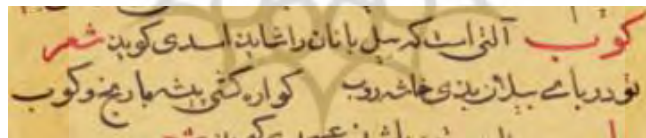 کوب آلتی است که پیل بانان را شاید اسدی گوید شعر
تو در پای پیلان بدی خاشه روب کواره کشی پیشه مارنج و کوب